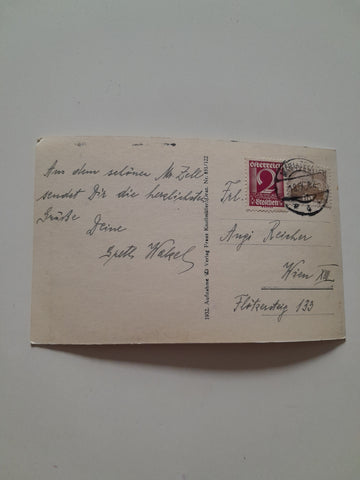 Aus dem schönen M. Zell
sendet Dir die herzlichsten
Grüße
Deine
Greth
1932. Aufnahme Verlag Franz Knollmüller, Graz. Nr. 851/122
Österreich
2
Groschen
Frl.
Angi Reicher
Wien XIII
Flötzersteig 133